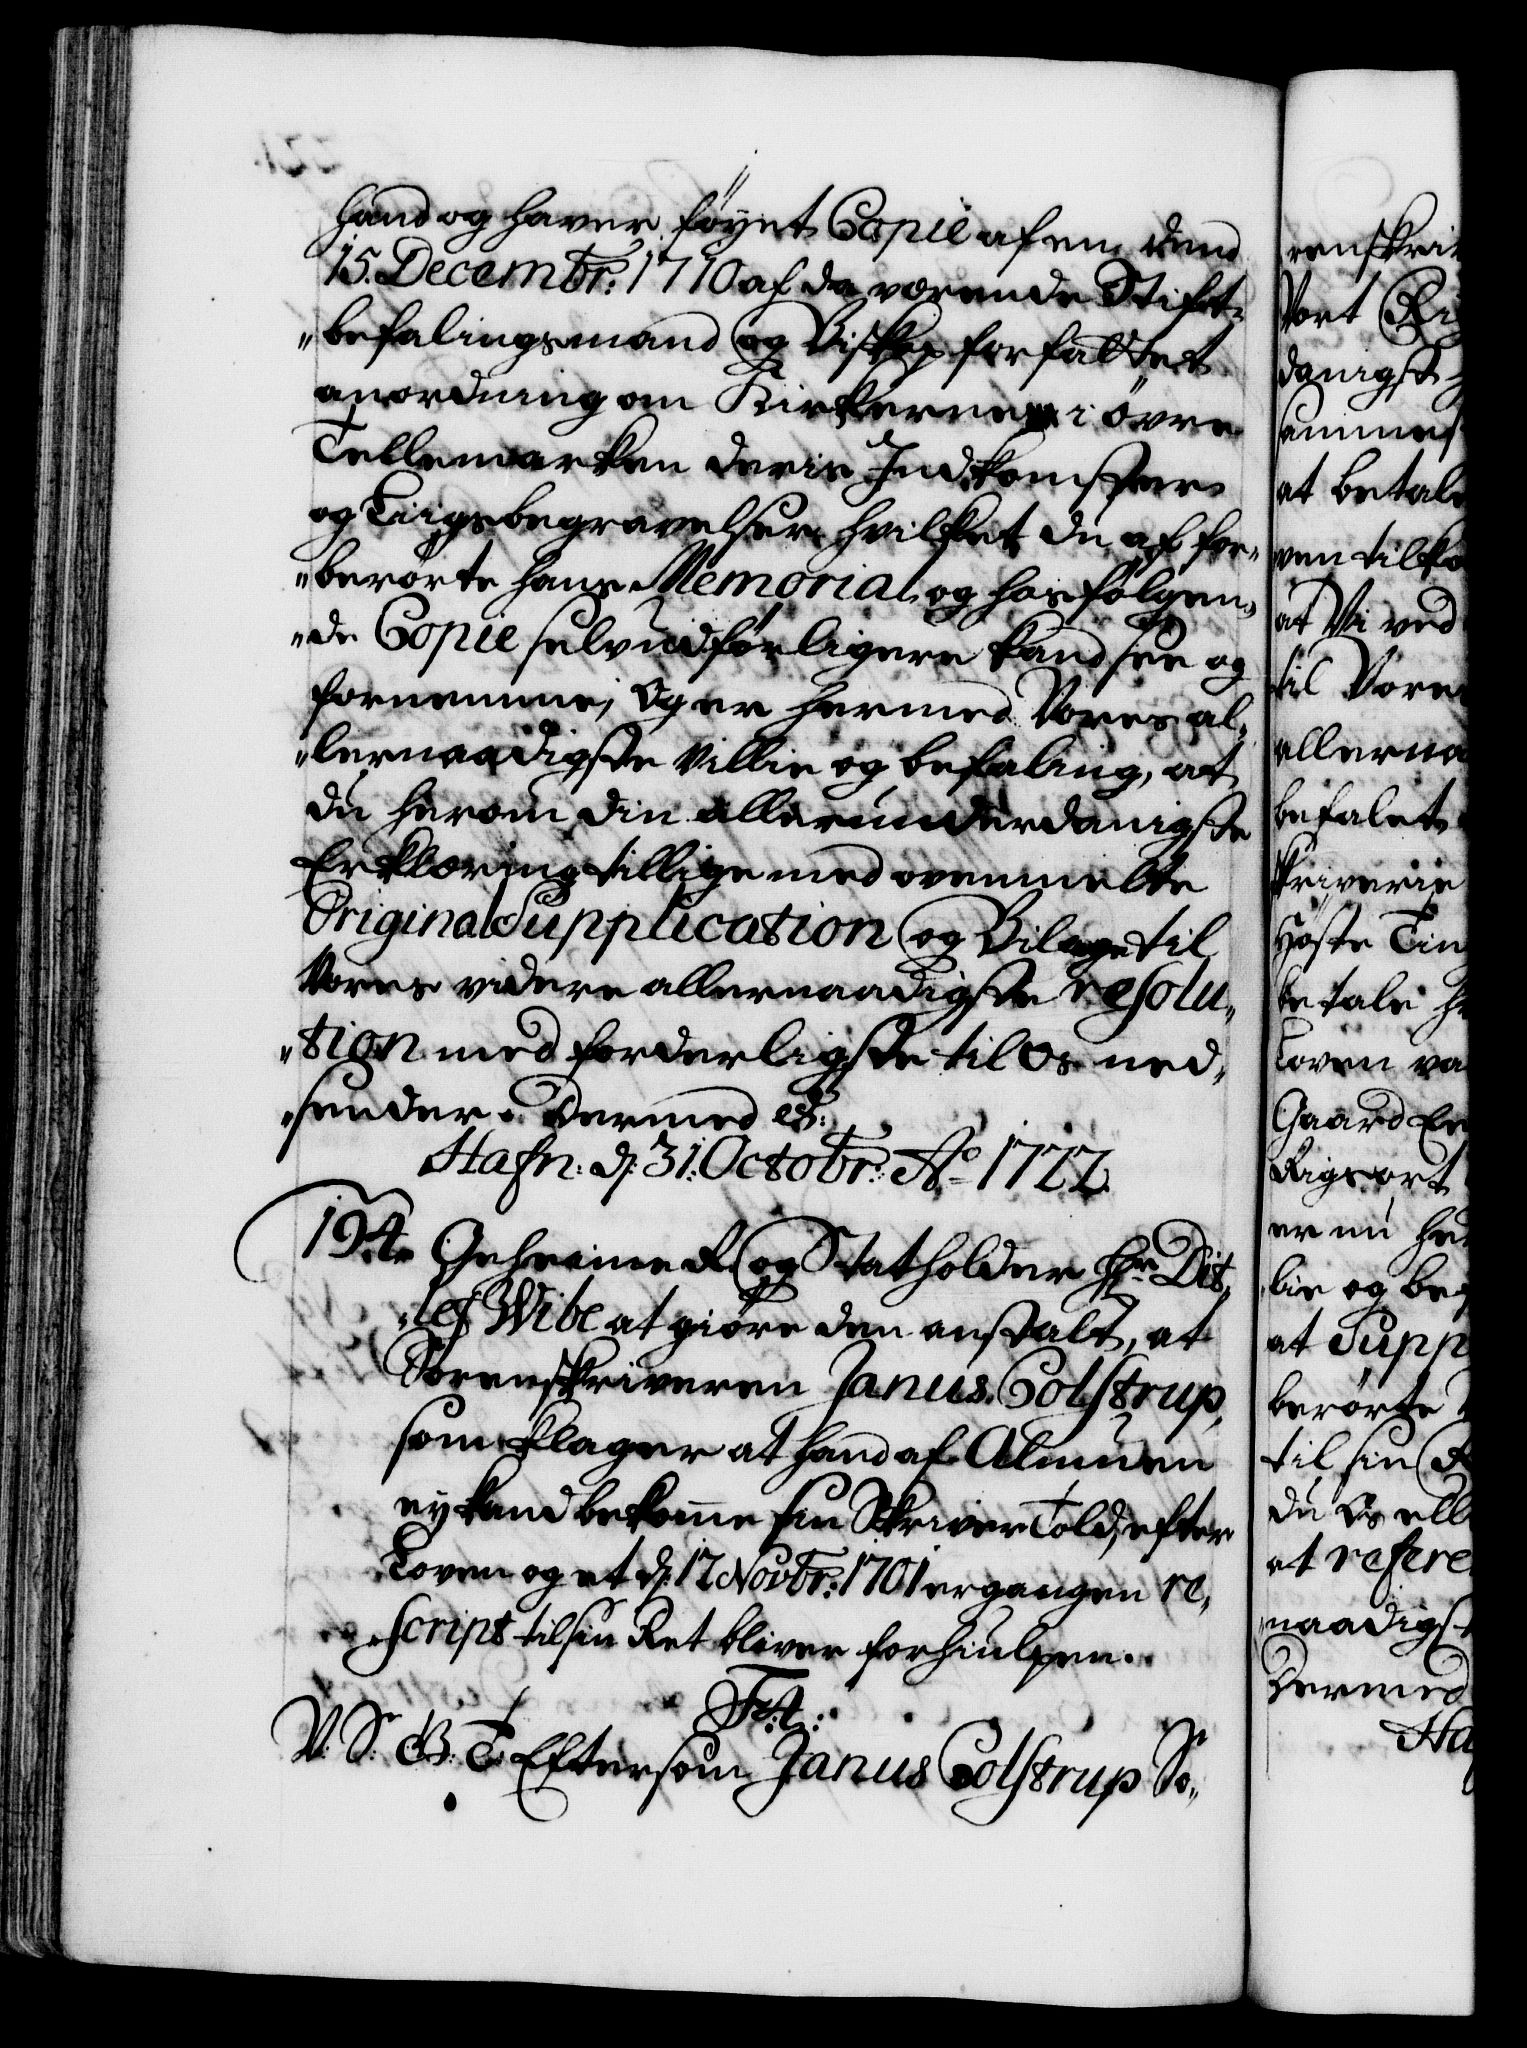 hand og haver föyet Copie af en dend
15. Decembr: 1710 af da værende Stift,,
,,befalingsmand og Biskop forfattet
anordning om Kirkerne i övre
Tellemarken deris Indkomster
og Liigsbegravelser, hvilket du af for,,
,,berørte hans Memorial og hosfölgen,,
,,de Copie selv udförligere kand see og
fornemme; Og er hermed Vores al,,
,,lernaadigste Villie og befaling, at
du herom din allerunderdanigste
Erklæring tillige med ovenmelte
Original Supplication og Bilage til
Vores videre allernaadigste resolu,,
,,tion med forderligste til Os ned,,
,,sender. Dermed etc:
Hafn: d: 31. Octobr: Ao 1722.
194. Geheime R: og Statholder Hr. Dit,,
,,lef Wibe at giöre den anstalt, at
Sorenskriveren Janus Colstrup,
som klager at hand af Almuen
ey kand bekome sin Skriver Told, efter
Loven og et d: 17 Novbr: 1701 ergangen re,,
,,script til sin Ret bliver forhiulpen.
F: 4:
V. S. G: B: T: Eftersom Janus Colstrup So,,
renskri
Vort
danigst
sammes
at betale
ven tilko
at Vi ved
til Vore
allerna
befalet
skriverie
Höste Tin
betale
Loven va
Gaard
Rigsort
er nu her
lie og be
at Supp
berørte
til sin
du Os
at refere
naadigst
Dermed
Haf